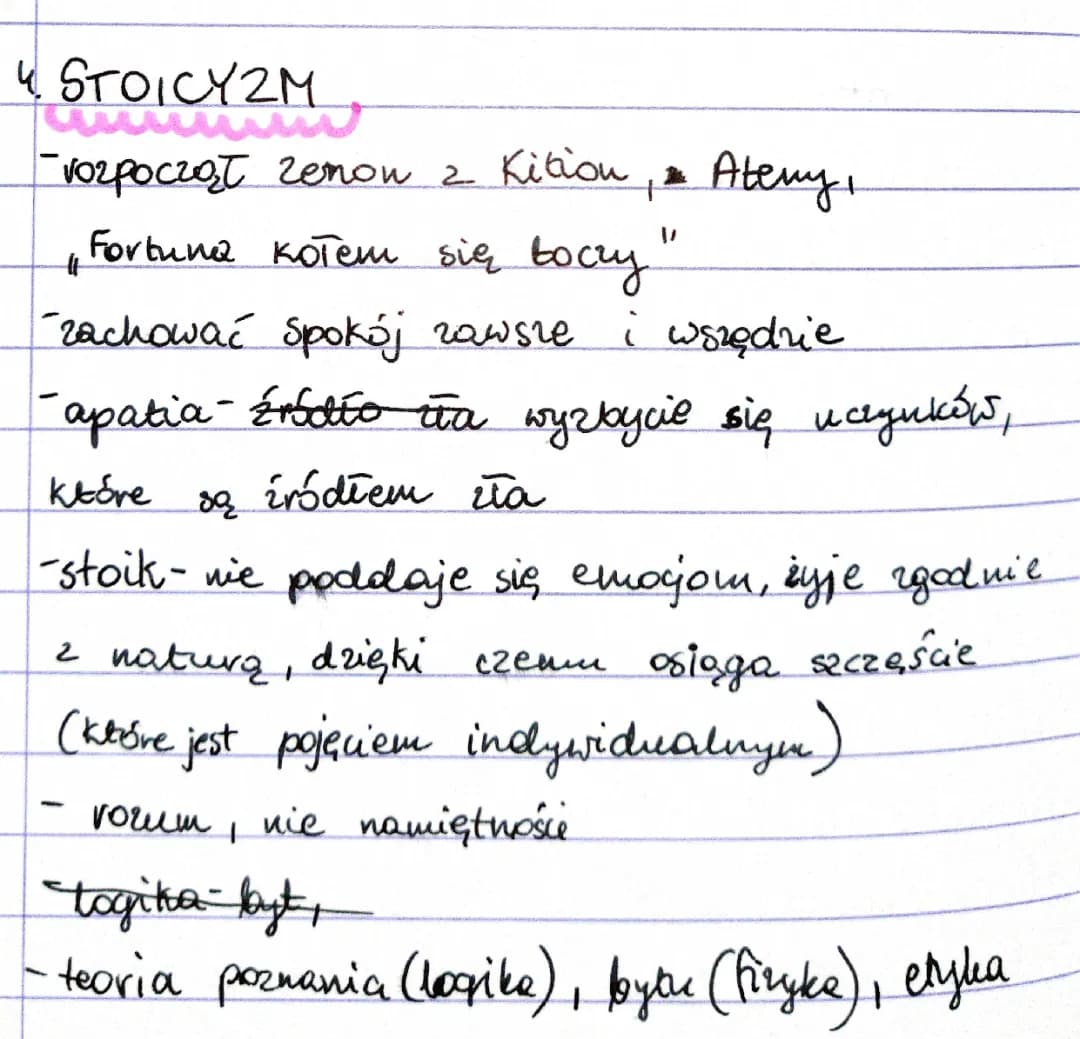 4. STOICYZM
-rozpoczął Zenon z Kition, Ateny,
„Fortuna kołem się toczy"
-zachować spokój zawsze i wszędzie
-apatia- źródło zła wyzbycie się uczynków,
które są źródłem zła
-stoik- nie poddaje się emocjom, żyje zgodnie
z naturą, dzięki czemu osiąga szczęście
(które jest pojęciem indywidualnym)
- rozum, nie namiętności
-logika- byt,
- teoria poznania (logika), bytu (fizyka), etyka